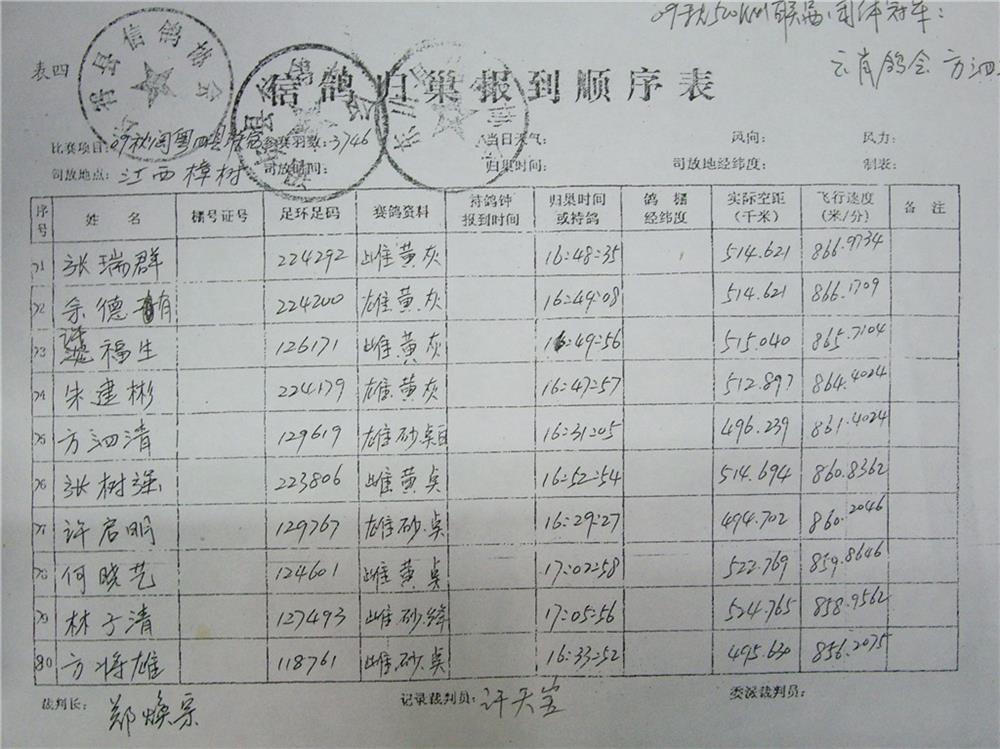 09秋520KM联赛.团体冠军:
云肖鸽会 方泗
表四
信鸽归巢报到顺序表
县信鸽协会
比赛项目: 09秋闽粤四县 参赛羽数: 3746 当日天气: 风向: 风力:
司放地点: 江西樟树 司放时间: 归巢时间: 司放地经纬度: 制表:
序号 姓名 棚号证号 足环足码 赛鸽资料 持鸽钟报到时间 归巢时间或持鸽 鸽棚经纬度 实际空距(千米) 飞行速度(米/分) 备注
71 张瑞群 224292 雌黄灰 16:48:35 514.621 866.9734
72 余德有 224200 雄黄灰 16:49:08 514.621 866.1709
73 许福生 126171 雌黄灰 16:49:56 515.040 865.7104
74 朱建彬 224179 雄黄灰 16:47:57 512.897 864.4024
75 方泗清 129619 雄砂 16:31:05 496.239 861.4024
76 张树强 223806 雌黄 16:52:54 514.694 860.8362
77 许启明 129767 雄砂 16:29:27 494.702 860.2046
78 何晓艺 124601 雌黄 17:02:58 522.769 859.8646
79 林子清 127493 雌砂绛 17:05:56 524.765 858.9562
80 方将雄 118761 雌砂 16:33:52 495.630 856.2075
裁判长: 郑焕宗 记录裁判员: 许天宝 委派裁判员: